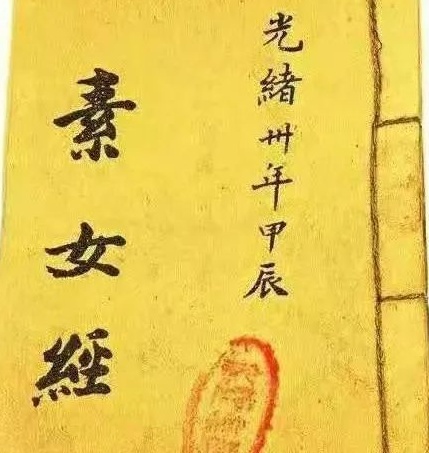 光緒卅年甲辰
素女經